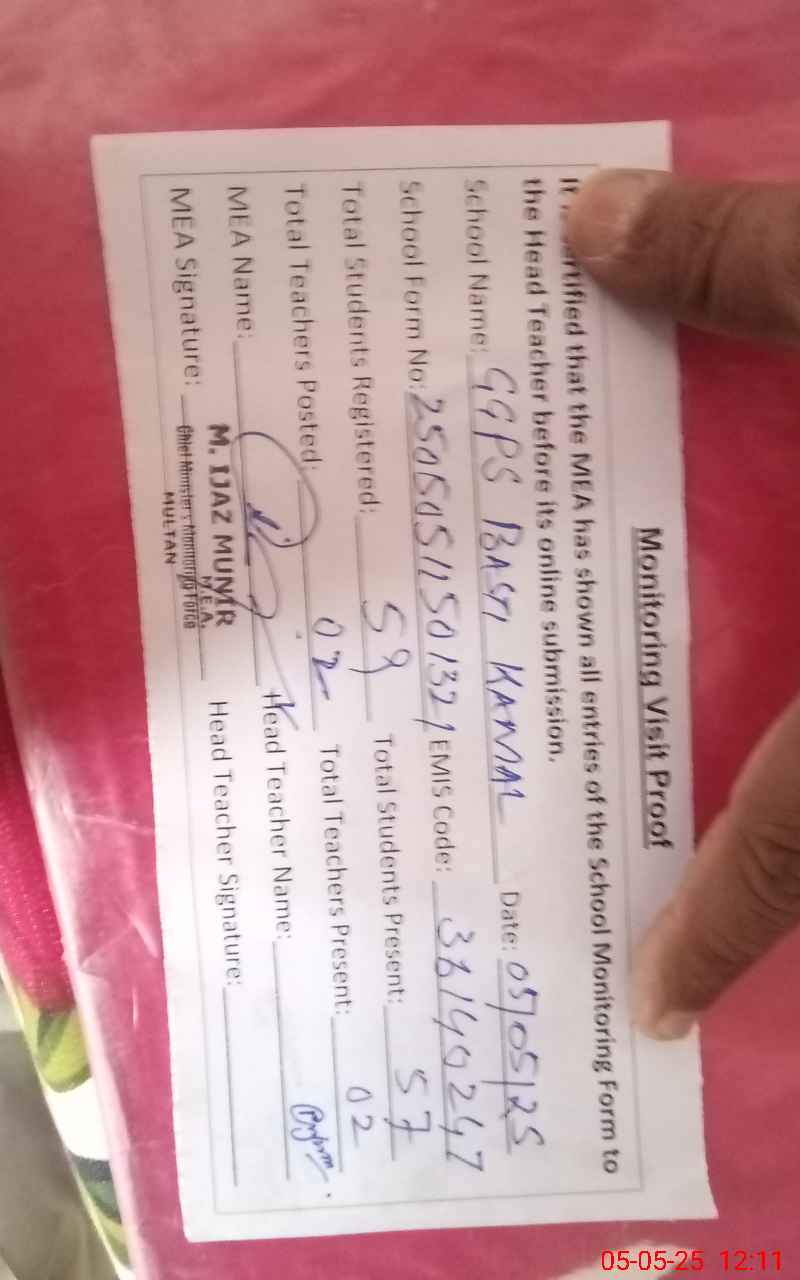 Monitoring Visit Proof
It is certified that the MEA has shown all entries of the School Monitoring Form to
the Head Teacher before its online submission.
School Name: GGPS BASTI KAMAL Date: 05/05/25
School Form No: 25050511501321 EMIS Code: 36140247
Total Students Registered: 59 Total Students Present: 57
Total Teachers Posted: 02 Total Teachers Present: 02
MEA Name: Head Teacher Name:
MEA Signature: Head Teacher Signature:
M. IJAZ MUNIR
M.E.A.
Chief Minister's Monitoring Force
MULTAN
05-05-25 12:11